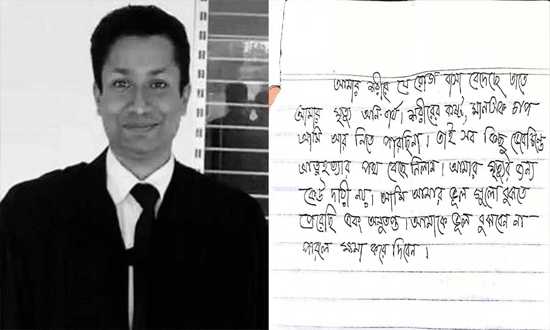 আমার শরীরে যে রোগ বাসা বেধেছে তাতে
আমার মৃত্যু অনিবার্য। শরীরের কষ্ট, মানসিক চাপ
আমি আর নিতে পারছিনা। তাই সব কিছু
আত্মহত্যার পথ বেছে নিলাম। আমার মৃত্যুর জন্য
কেউ দায়ী নয়। আমি আমার ভুল গুলো বুঝতে
পেরেছি এবং অনুতপ্ত। আমাকে ভুল বুঝবেন না
পারলে ক্ষমা করে দিবেন।